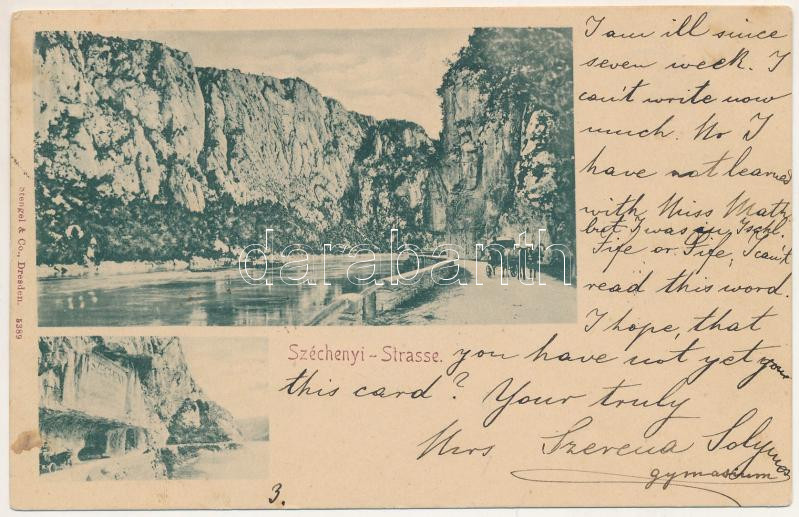 I am ill since
seven week. I
can't write now
much. No I
have not learned
with Miss Math.
but I was in Ischl.
Fife or Life; I can't
read this word.
I hope, that
you have not yet your
this card? Your truly
Mrs Szerena Solymos
gymnasium
Széchenyi-Strasse.
Stengel & Co., Dresden. 5389
darabanth
3.